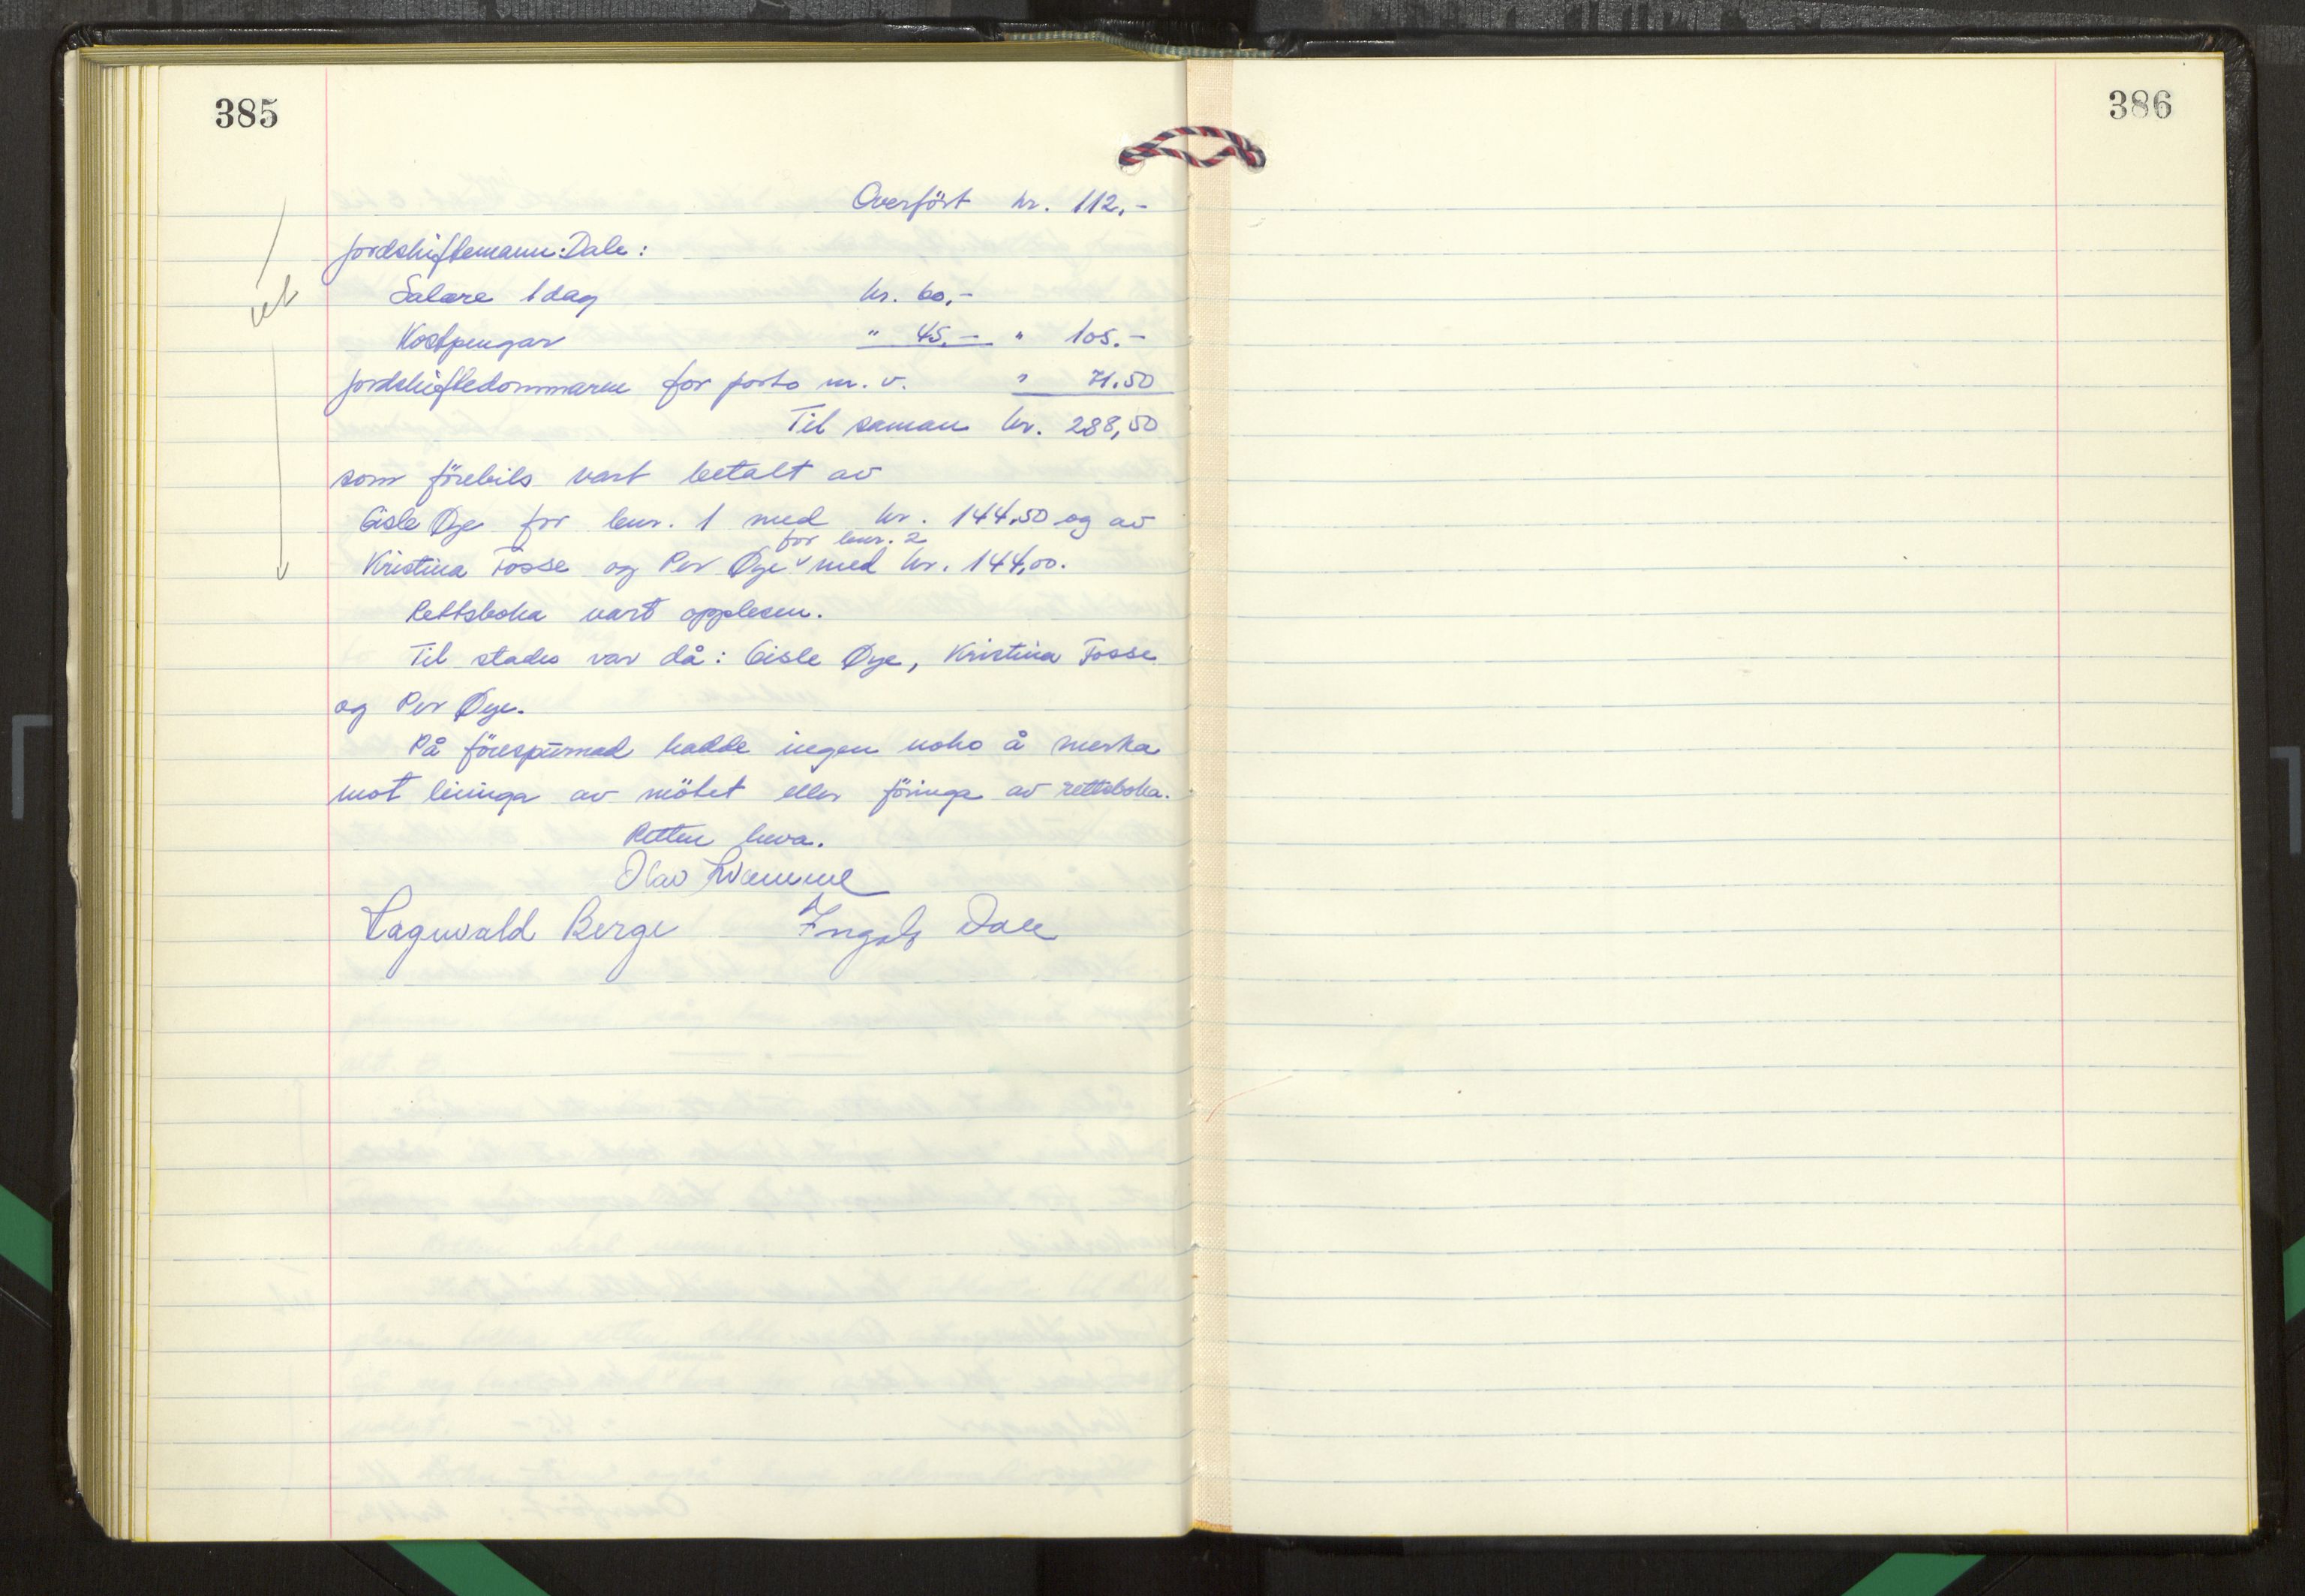 385
386
Overfört kr. 112.-
Jordskiftemann: Dale:
Salære 1 dag kr. 60,-
Kostpengar " 45.- " 105.-
Jordskiftedommaren for porto m.v. " 71.50
Til saman kr. 288,50
som förebils vart betalt av
Gisle Øye for bnr. 1 med kr. 144.50 og av
for bnr. 2
Kristina Fosse og Per Øye med kr. 144,00.
Rettsboka vart opplesen.
Til stades var då: Gisle Øye, Kristina Fosse
og Per Øye.
På förespurnad hadde ingen noko å merka
mot leiinga av mötet eller föringa av rettsboka.
Retten heva.
Olav
Ragnvald Berge Ingolv Dale